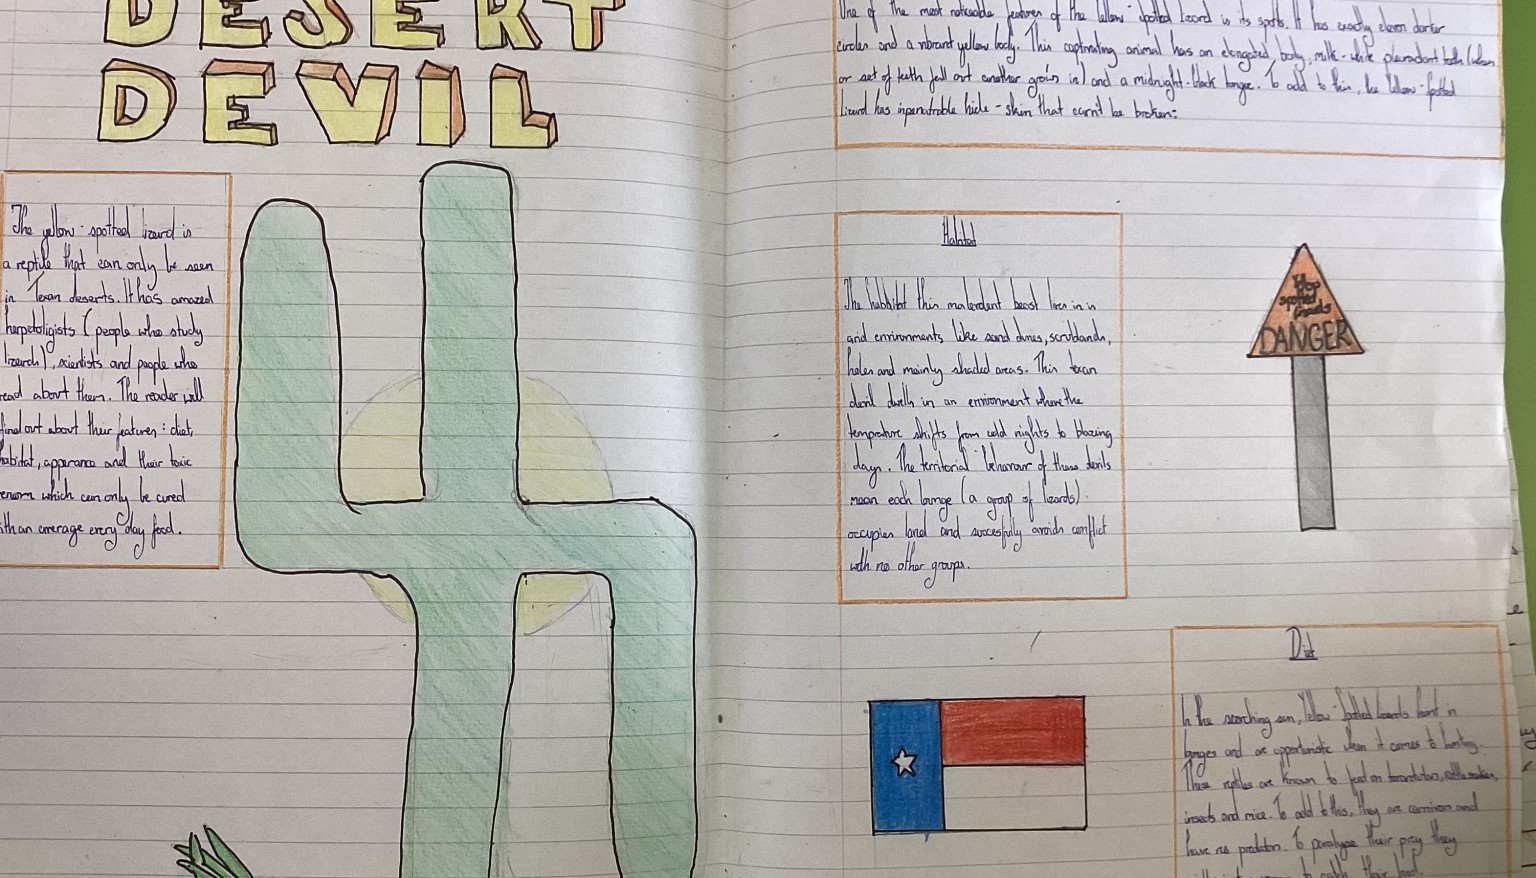 DESERT
DEVIL
The yellow-spotted lizard is
a reptile that can only be seen
in Texan deserts. It has amazed
herpetoligists (people who study
lizards), scientists and people who
read about them. The reader will
find out about their features: diet,
habitat, apperance and their toxic
enom which can only be cured
ith an average every day food.
One of the most noticeable features of the Yellow-spotted lizard is its spots. It has exactly eleven darker
circles and a vibrant yellow body. This captivating animal has an elongated body, milk-white pleurodont teeth (when
or set of teeth fall out another grows in) and a midnight-black tongue. To add to this, the Yellow-Spotted
Lizard has inpenatrable hide - skin that can't be broken.
Habitat
The habbitat this malevolent beast lives in is
arid environments like sand dunes, scrublands,
holes and mainly shaded areas. This texan
devil dwells in an environment where the
temprature shifts from cold nights to blazing
days. The territorial behaviour of these devils
mean each lounge (a group of lizards)
occupies land and succesfully avoids conflict
with no other groups.
spotted
DANGER
Diet
In the scorching sun, Yellow-Spotted lizards hunt in
lounges and are opportunistic when it comes to hunting.
These reptiles are known to feed on tarantulas, rattlesnakes,
insects and mice. To add to this, they are carnivores and
have no predators. To paralyse their prey they
to catch their